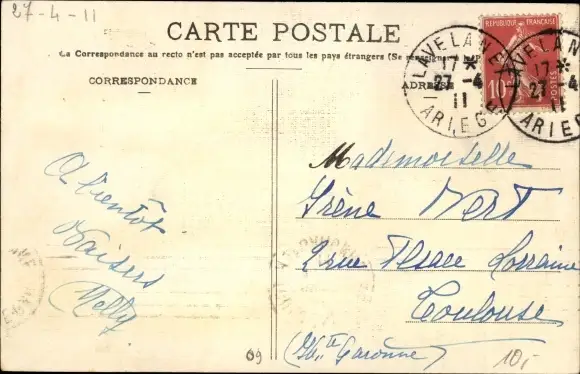 27-4-11
CARTE POSTALE
La Correspondance au recto n'est pas acceptée par tous les pays étrangers (Se renseigner
CORRESPONDANCE
ADRESSE
REPUBLIQUE FRANÇAISE
10
POSTES
LAVELANET
17 *
27-4
11
ARIEGE
LAVELANET
17 *
27-4
11
ARIEGE
A bientôt
Baisers
Nelly
Mademoiselle
Irène Vert
2 rue Alsace Lorraine
Toulouse
(Hte Garonne)
09
10,-